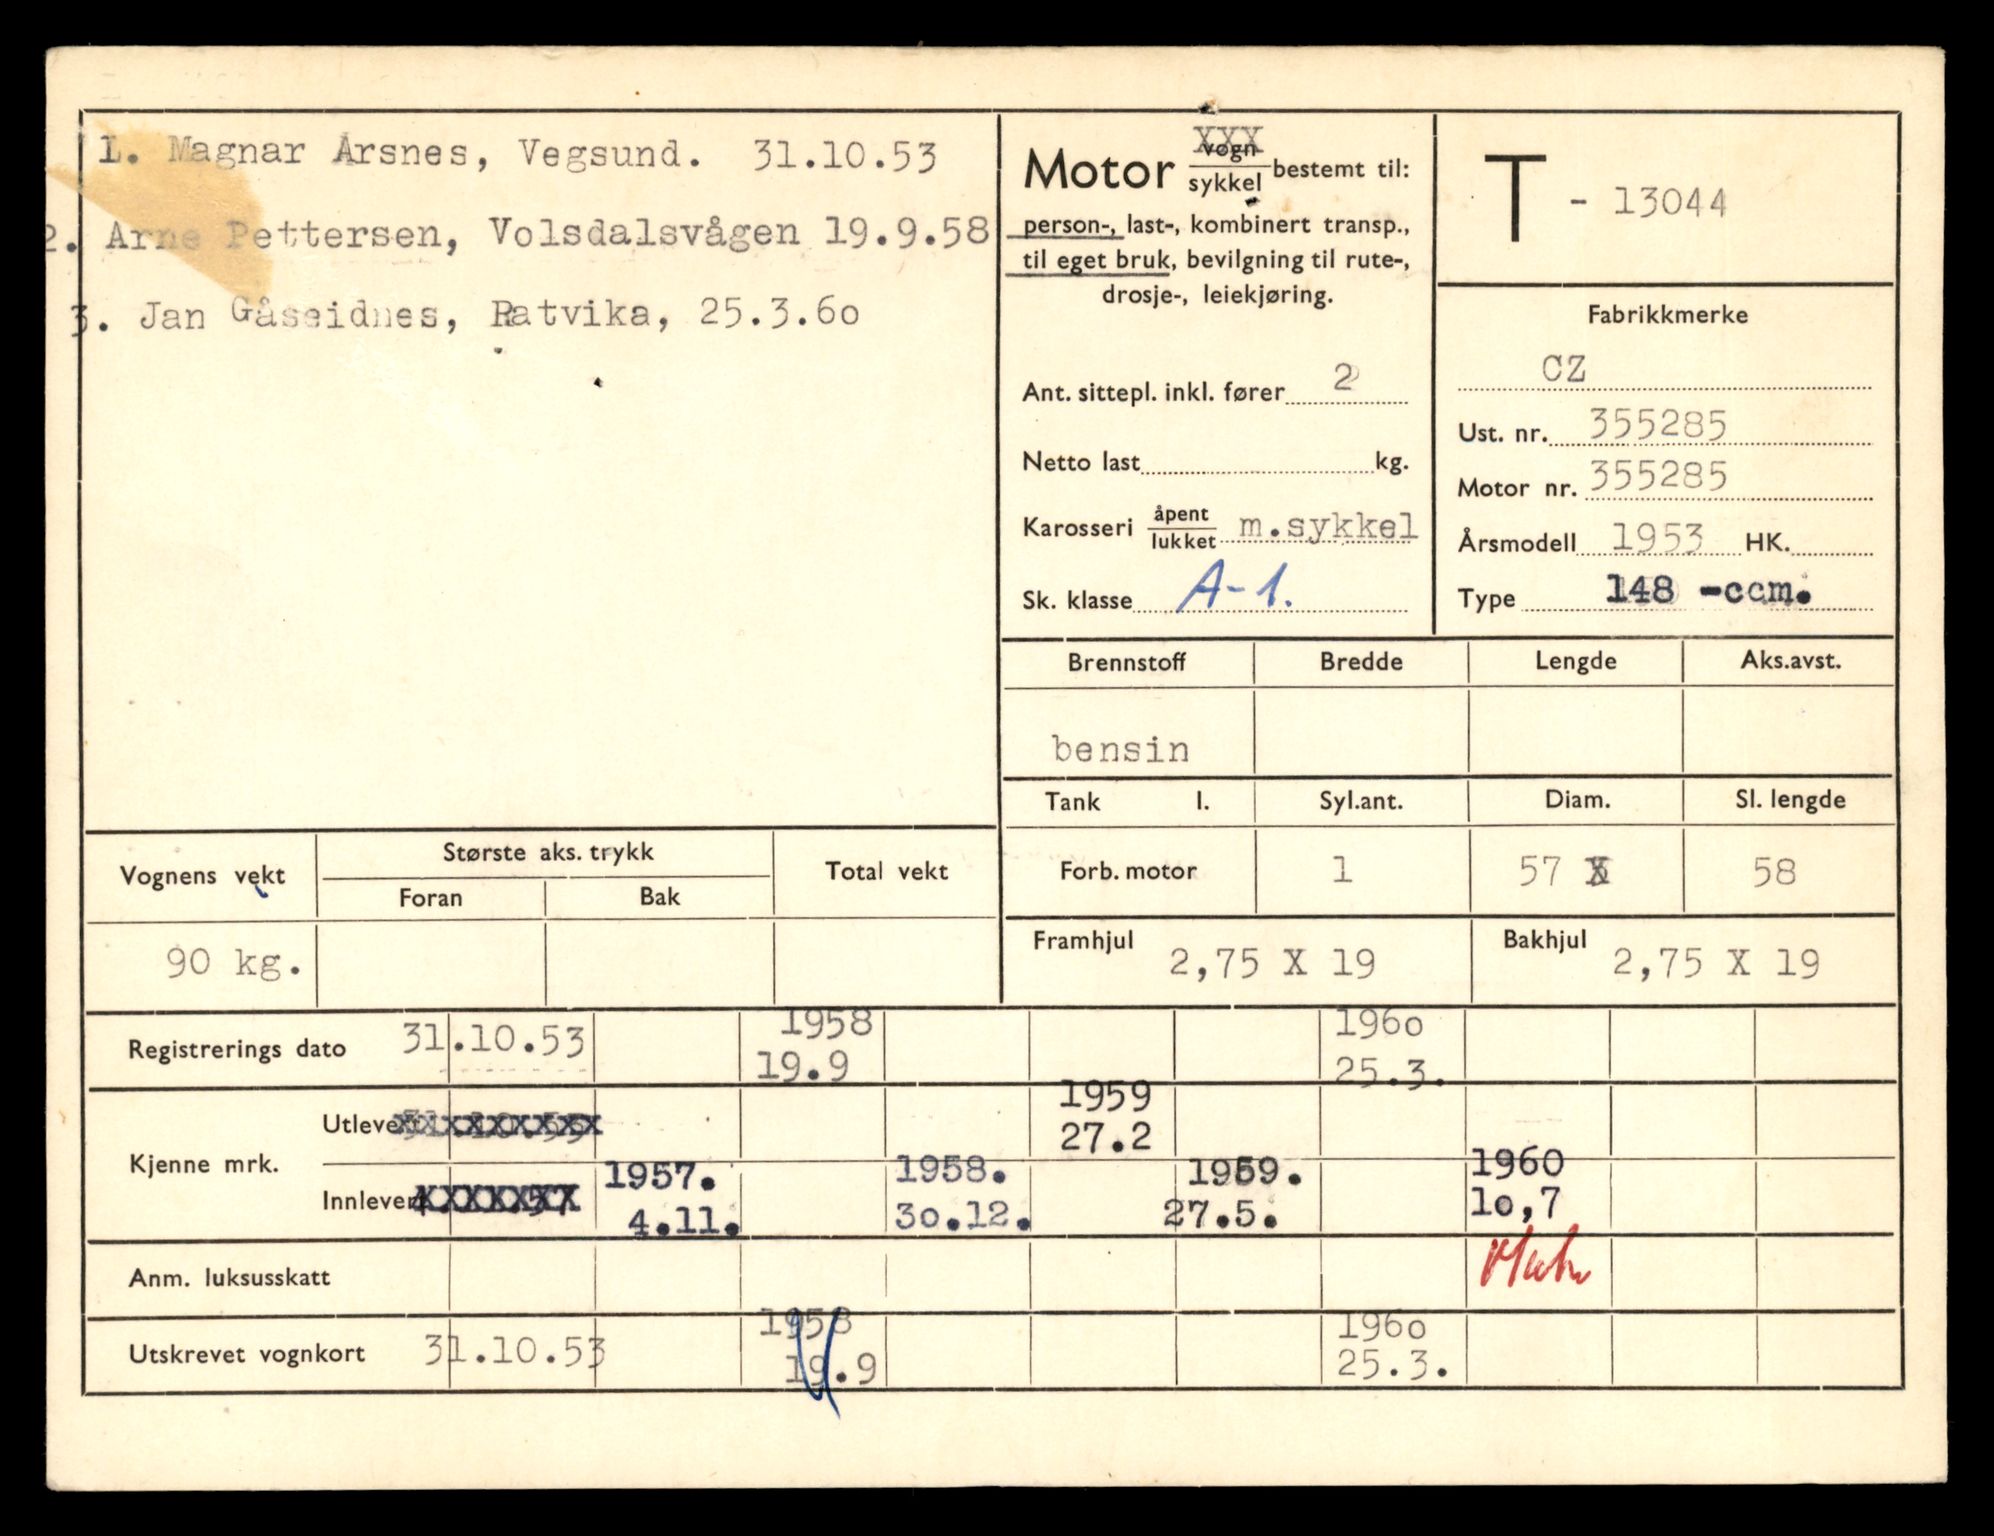 1. Magnar Årsnes, Vegsund. 31.10.53
2. Arne Pettersen, Volsdalsvågen 19.9.58
3. Jan Gåseidnes, Ratvika, 25.3.6o
Motor XXX vogn / sykkel bestemt til:
person-, last-, kombinert transp.,
til eget bruk, bevilgning til rute-,
drosje-, leiekjøring.
Ant. sittepl. inkl. fører 2
Netto last kg.
Karosseri åpent / lukket m.sykkel
Sk. klasse A-1.
T - 13044
Fabrikkmerke
CZ
Ust. nr. 355285
Motor nr. 355285
Årsmodell 1953 HK.
Type 148 -ccm.
Brennstoff Bredde Lengde Aks.avst.
bensin
Tank l. Syl.ant. Diam. Sl. lengde
Forb. motor 1 57 X 58
Framhjul 2,75 X 19 Bakhjul 2,75 X 19
Vognens vekt Største aks. trykk Total vekt
Foran Bak
90 kg.
Registrerings dato 31.10.53 1958 19.9 1960 25.3.
Kjenne mrk.
Utlevert 31.10.53 1959 27.2
Innlevert 1957. 4.11. 1958. 3o.12. 1959. 27.5. 1960 1o,7
Anm. luksusskatt
Utskrevet vognkort 31.10.53 1958 19.9 196o 25.3.